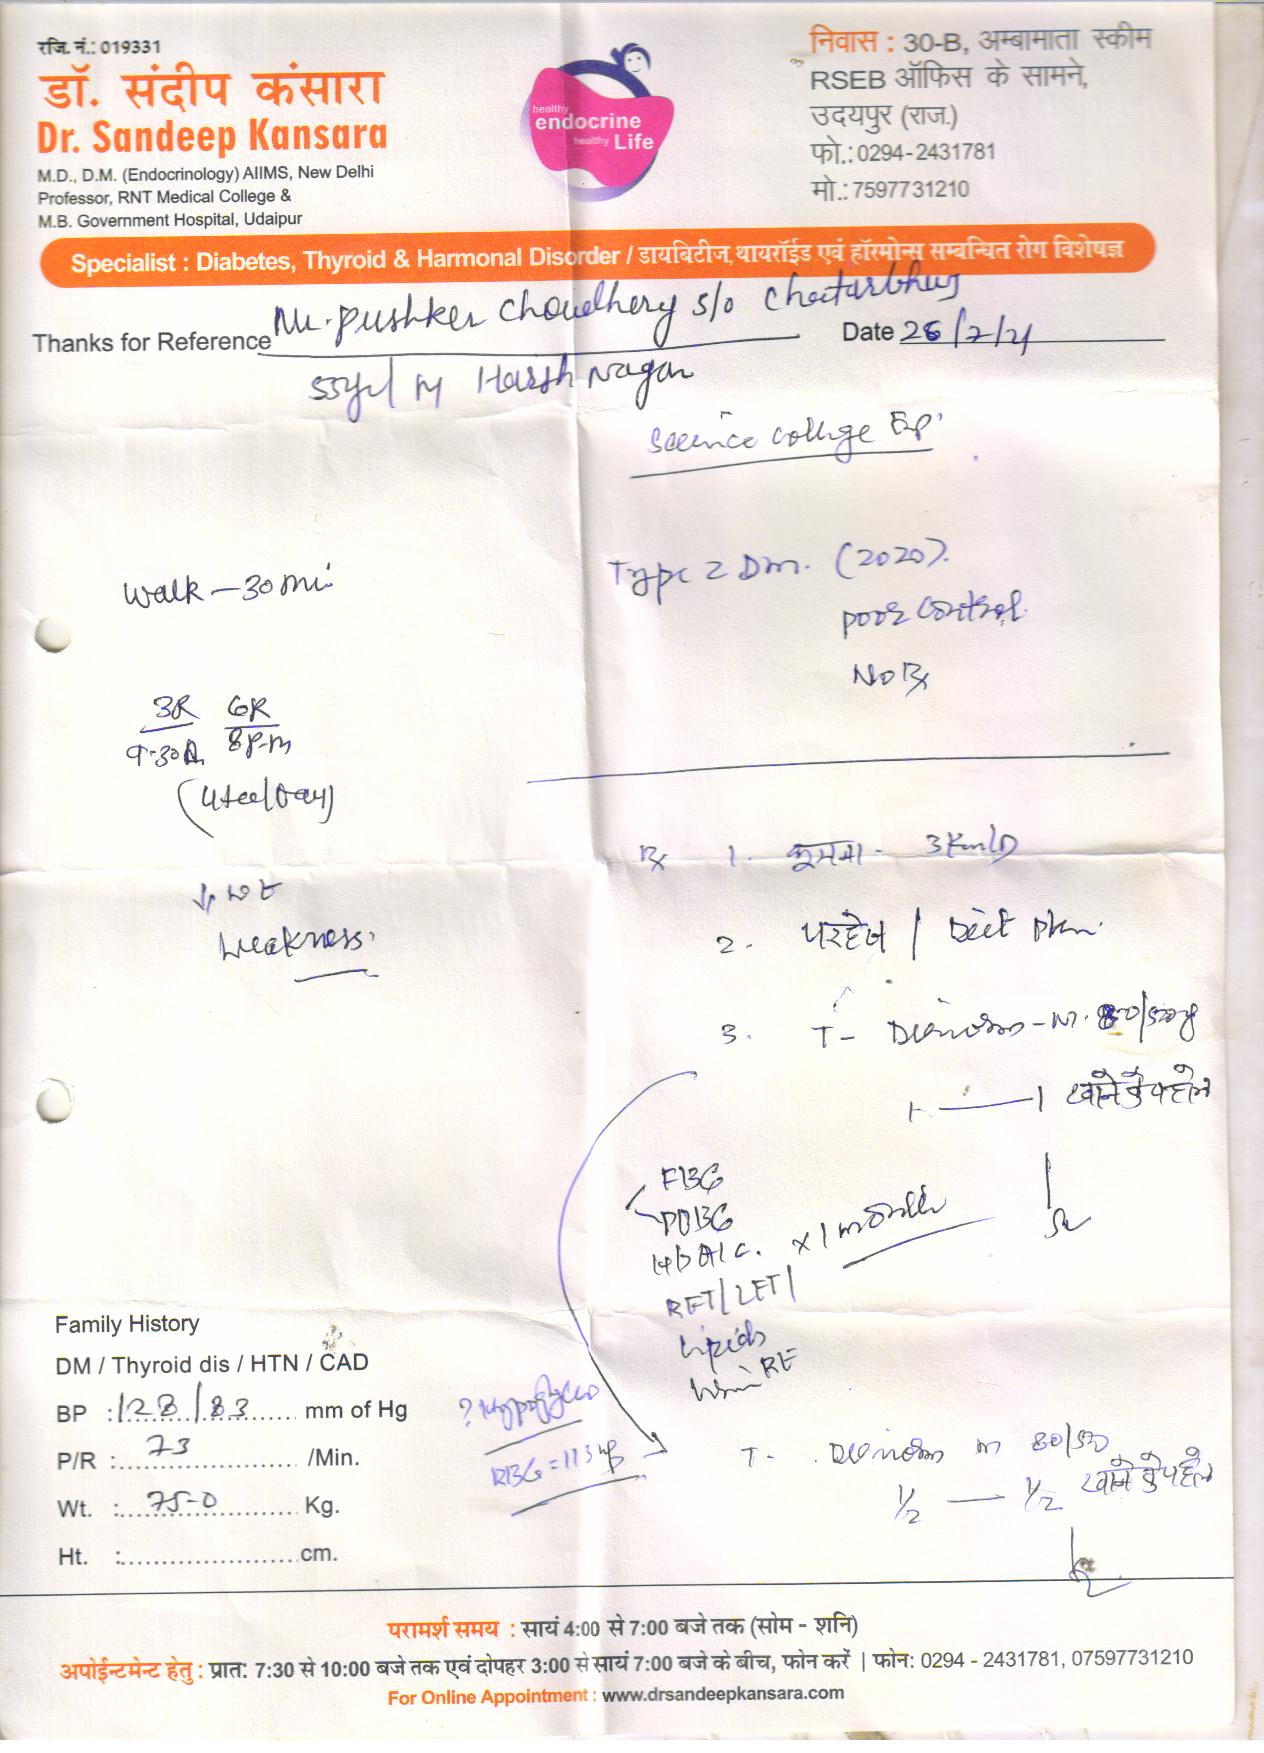 रजि. नं.: 019331
डॉ. संदीप कंसारा
Dr. Sandeep Kansara
M.D., D.M. (Endocrinology) AIIMS, New Delhi
Professor, RNT Medical College &
M.B. Government Hospital, Udaipur
healthy
endocrine
healthy Life
निवास : 30-B, अम्बामाता स्कीम
RSEB ऑफिस के सामने,
उदयपुर (राज.)
फो.: 0294-2431781
मो.: 7597731210
Specialist : Diabetes, Thyroid & Harmonal Disorder / डायबिटीज, थायरॉईड एवं हॉरमोन्स सम्बन्धित रोग विशेषज्ञ
Thanks for Reference Mr. Pushker Choudhery s/o Chaturbhuj
Date 26/7/21
55yr/M Harsh Nagar
Science college
Walk - 30 min
Type 2 Dm. (2020).
poor control
No Rx
3R 6R
9-30A 8p-m
↓ wt
weakness.
Rx 1. घूमना - 3 Km/D
2. परहेज / Diet plan.
3. T- Dianorm-M. 80/500
1 — 1 खाने के पहले
FBG
PPBG
HbA1c. x 1 month
RFT/LFT/
Lipids
Urine RE
Family History
DM / Thyroid dis / HTN / CAD
BP : 128/83 mm of Hg
P/R : 73 /Min.
Wt. : 75-0 Kg.
Ht. : cm.
? Hypoglyceo
RBG = 113 mg
T- Dianorm M 80/500
1/2 — 1/2 खाने के पहले
परामर्श समय : सायं 4:00 से 7:00 बजे तक (सोम - शनि)
अपोईन्टमेन्ट हेतु : प्रात: 7:30 से 10:00 बजे तक एवं दोपहर 3:00 से सायं 7:00 बजे के बीच, फोन करें | फोन: 0294 - 2431781, 07597731210
For Online Appointment : www.drsandeepkansara.com